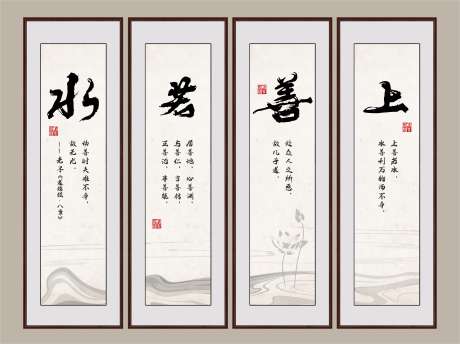 上
上善若水，
水善利万物而不争，
善
处众人之所恶，
故几于道。
若
居善地，心善渊，
与善仁，言善信，
正善治，事善能，
水
动善时夫唯不争，
故无尤。
——老子《道德经·八章》